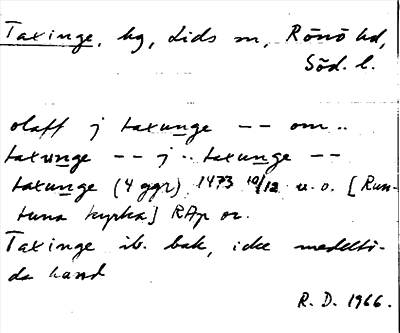 Taxinge, hg, Lids sn, Rönö hd,
Söd. l.
olaff j taxunge -- om..
taxunge -- j .. taxunge --
taxunge (4 ggr) 1473 10/12 u. o. [Run-
tuna kyrka] RAp or.
Taxinge ib. bak, icke medelti-
da hand
R. D. 1966.